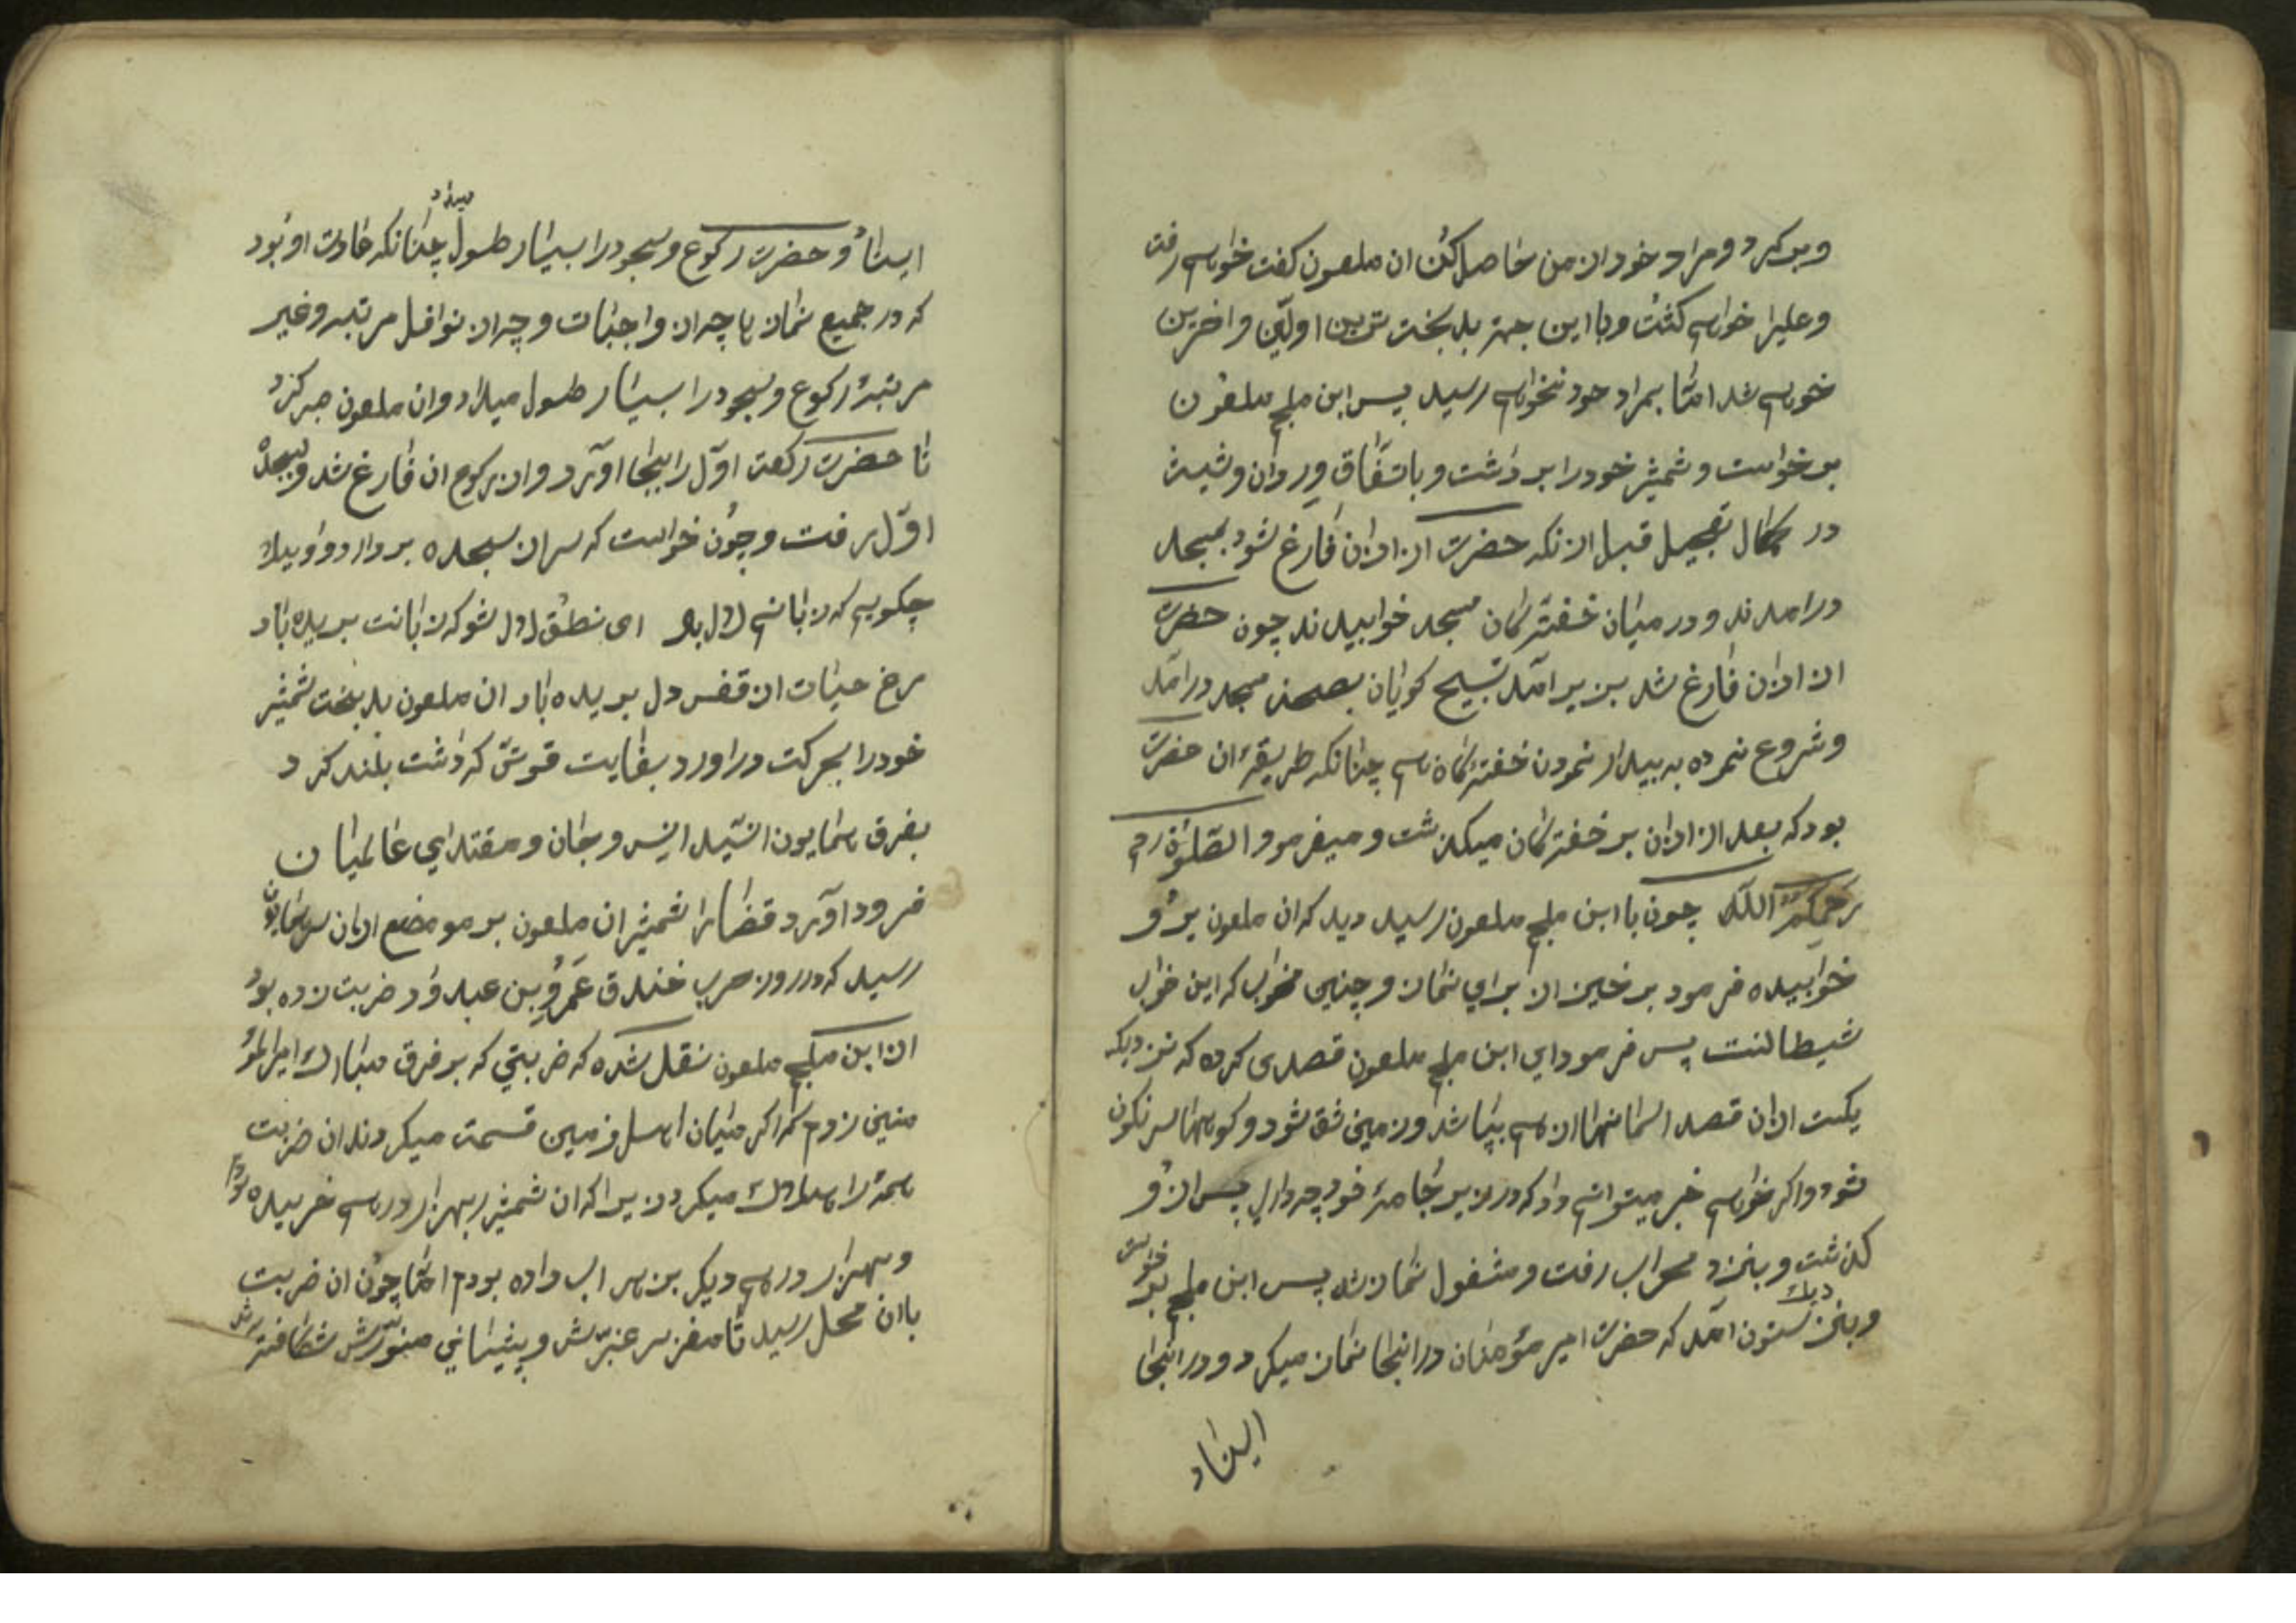 وبر کرد و مراد خود از من حاصل کن ان ملعون کفت خواهم رفت
و علیرا خواهم کشت و با این جهة بدبخت ترین اولین و اخرین
خواهم شد امّا بمراد خود نخواهم رسید پس ابن ملجم ملعون
برخواست و شمشیر خود را برداشت و باتفاق وردان و شبیث
در کمال تعجیل قبل ازنکه حضرت از اذان فارغ شود بمسجد
درامدند و در میان خفته‌کان مسجد خوابیدند چون حضرت
از اذان فارغ شد بزیر امد تسبیح کویان بصحن مسجد درامد
و شروع نموده به بیدار نمودن خفته‌کان چنانکه طریقۀ ان حضرت
بود که بعد از اذان بر خفته‌کان میکذشت و میفرمود الصّلوٰة
یرحمکم اللّه چون با ابن ملجم ملعون رسید دید که ان ملعون برو
خوابیده فرمود برخیز از برای نماز و چنین مخواب که این خواب
شیطانست پس فرمود ای ابن ملجم ملعون قصدی کرده که نزدیکه
یکست ازان قصد اسمانها از هم بپاشد و زمین شق شود و کوهها سرنکون
شود و اکر خواهم خبر میتوانم داد که در زیر جامۀ خود چه داری پس ازو
کذشت و بنزد محراب رفت و مشغول نماز شد پس ابن ملجم برخواست
و بنزدیك ستون امد که حضرت امیر مؤمنان در انجا نماز میکرد و در انجا
ایستاد
ایستاد و حضرت رکوع و سجود را بسیار طول میداد چنانکه عادت او بود
که در جمیع نمازها چه از واجبات و چه از نوافل مرتبه و غیر
مرتبۀ رکوع و سجود را بسیار طول میداد و ان ملعون صبر کرد
تا حضرت رکعت اوّل را بجا اورد و از رکوع ان فارغ شد و بسجدۀ
اوّل رفت و چون خواست که سر از سجده بر دارد واویلاه
چکویم که زبانم لال باد ای نطق لال شو که زبانت بریده باد
مرغ حیات از قفس دل بریده باد ان ملعون بدبخت شمشیر
خود را بحرکت دراورد بغایت قوتی که داشت بلند کرد
بفرق همایون ان سید انس و جان و مقتدای عالمیان
فرود اورد قضا را شمشیر ان ملعون بر موضع ازان سر همایون
رسید که در روز حرب خندق عَمرو بن عبدود ضربت زده بود
از ابن ملجم ملعون نقل شده که ضربتی که بر فرق مبارك امیرالمؤ
منین زدم که اکر میان اهل زمین قسمت میکردند ان ضربت
همه را هلاك میکرد زیرا که ان شمشیر بهزار درهم خریده بودم
و بهزار درهم دیکر بزهر اب داده بودم امّا چون ان ضربت
باان محل رسید تا مغز سر عنبرش و پیشانی منورش شکافته شد